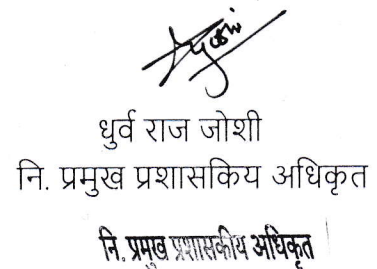 धुर्व राज जोशी
नि. प्रमुख प्रशासकिय अधिकृत
नि. प्रमुख प्रशासकीय अधिकृत